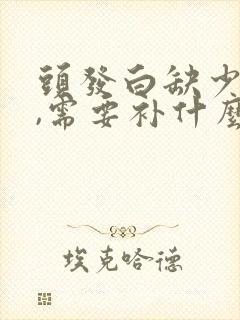 頭發白缺少
,需要补什麼
埃克哈德